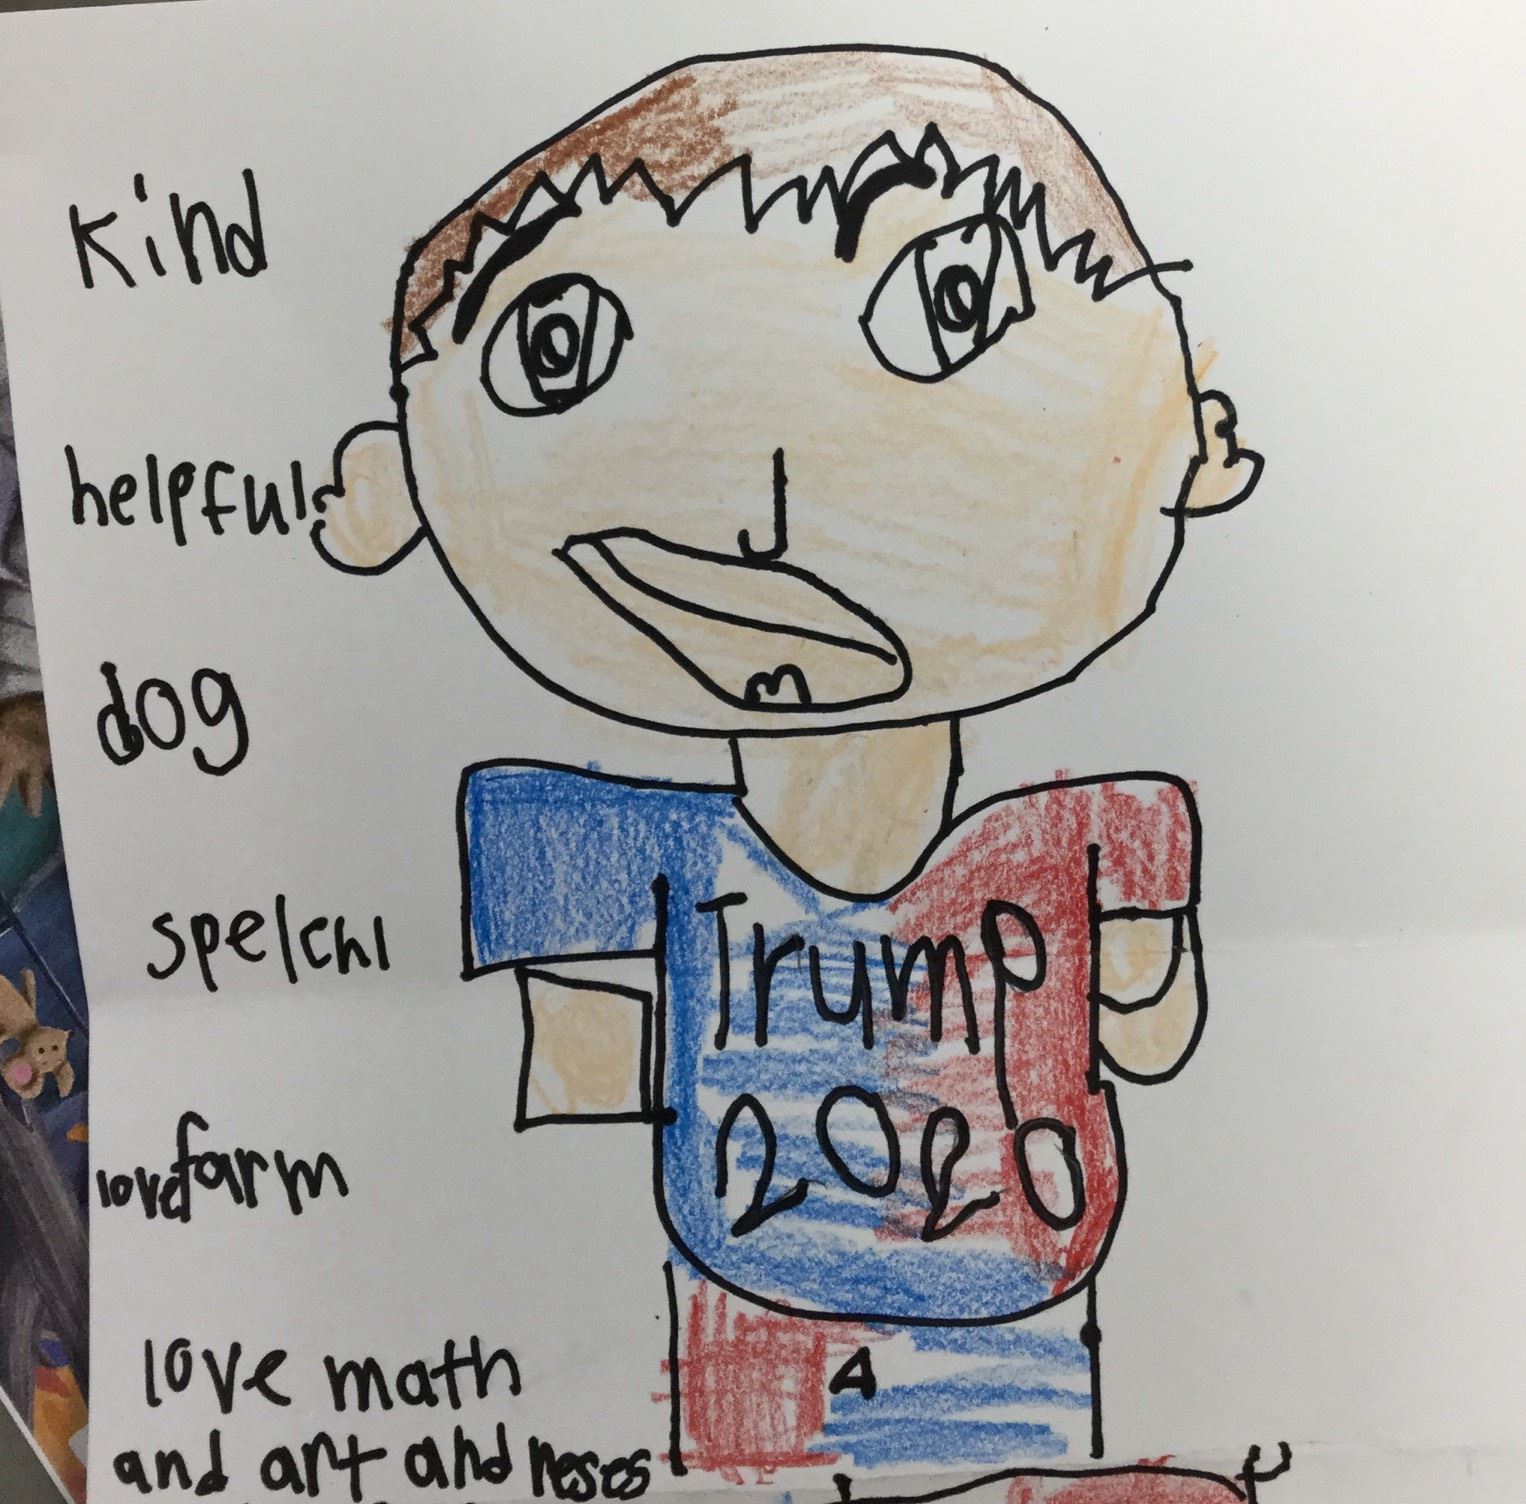 kind
helpful
dog
spelchl
Trump
2020
love farm
love math
4
and art and reses